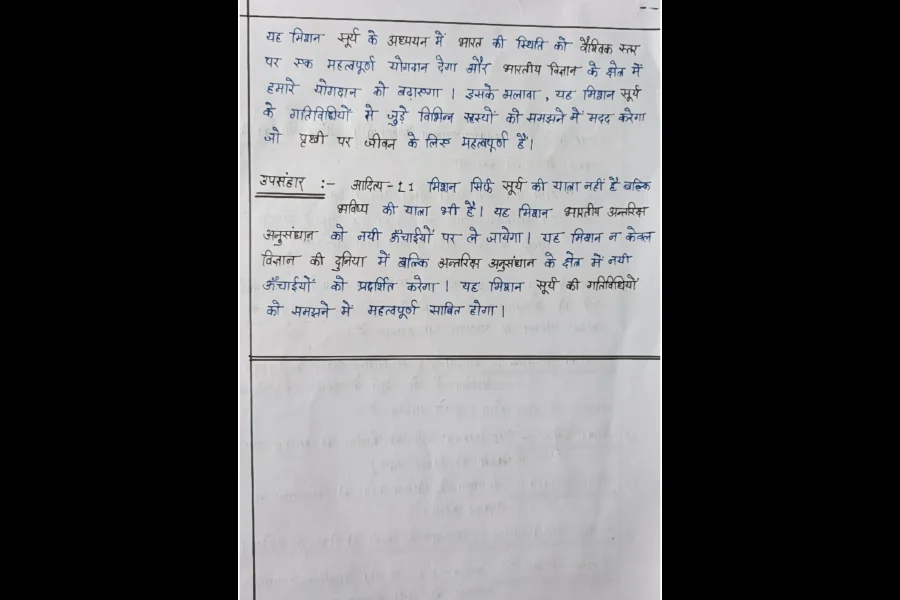 यह मिशन सूर्य के अध्ययन में भारत की स्थिति को वैश्विक स्तर
पर एक महत्वपूर्ण योगदान देगा और भारतीय विज्ञान के क्षेत्र में
हमारे योगदान को बढ़ाएगा । इसके अलावा , यह मिशन सूर्य
के गतिविधियों से जुड़े विभिन्न रहस्यों को समझने में मदद करेगा
जो पृथ्वी पर जीवन के लिए महत्वपूर्ण हैं ।
उपसंहार :- आदित्य-L1 मिशन सिर्फ सूर्य की यात्रा नहीं है बल्कि
भविष्य की यात्रा भी है । यह मिशन भारतीय अन्तरिक्ष
अनुसंधान को नयी ऊँचाईयों पर ले जायेगा । यह मिशन न केवल
विज्ञान की दुनिया में बल्कि अन्तरिक्ष अनुसंधान के क्षेत्र में नयी
ऊँचाईयों को प्रदर्शित करेगा । यह मिशन सूर्य की गतिविधियों
को समझने में महत्वपूर्ण साबित होगा ।